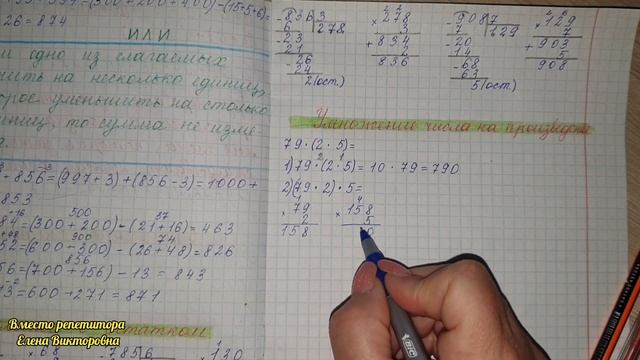 26 = 874
ИЛИ
и одно из слагаемых
на несколько единиц,
уменьшить на столько
то сумма не изме
- 856 = (997 + 3) + (856 - 3) = 1000 +
853
= (300 + 200) - (21 + 16) = 463
= (600 - 300) - (26 + 48) = 826
56 = (700 + 156) - 13 = 843
= 600 + 271 = 871
836 3
6 278
23
21
26
24
2(ост.)
× 278
3
+ 834
2
836
9087
7 129
20
14
68
63
5(ост.)
× 129
7
+ 903
5
908
Умножение числа на произведен
79 · (2 · 5) =
1) 79 · (2 · 5) = 10 · 79 = 790
2) (79 · 2) · 5 =
× 79
2
158
× 158
5
0
785 6
130
Вместо репетитора
Елена Викторовна